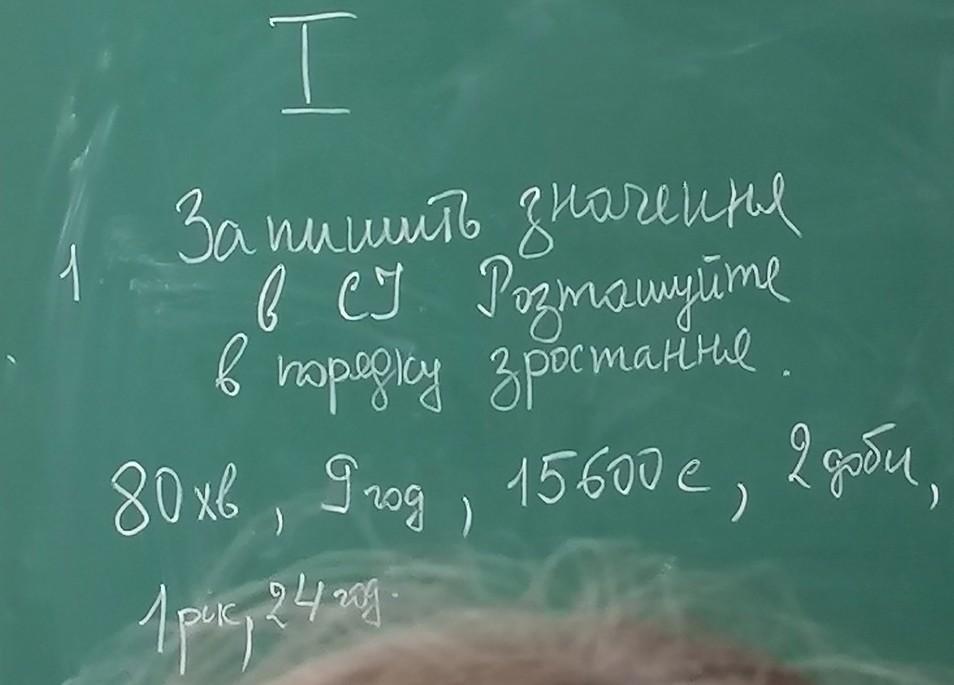 I
1 Запишіть значення
в СІ Розташуйте
в порядку зростання.
80 хв, 9 год, 15600 с, 2 доби,
1 рік, 24 год.